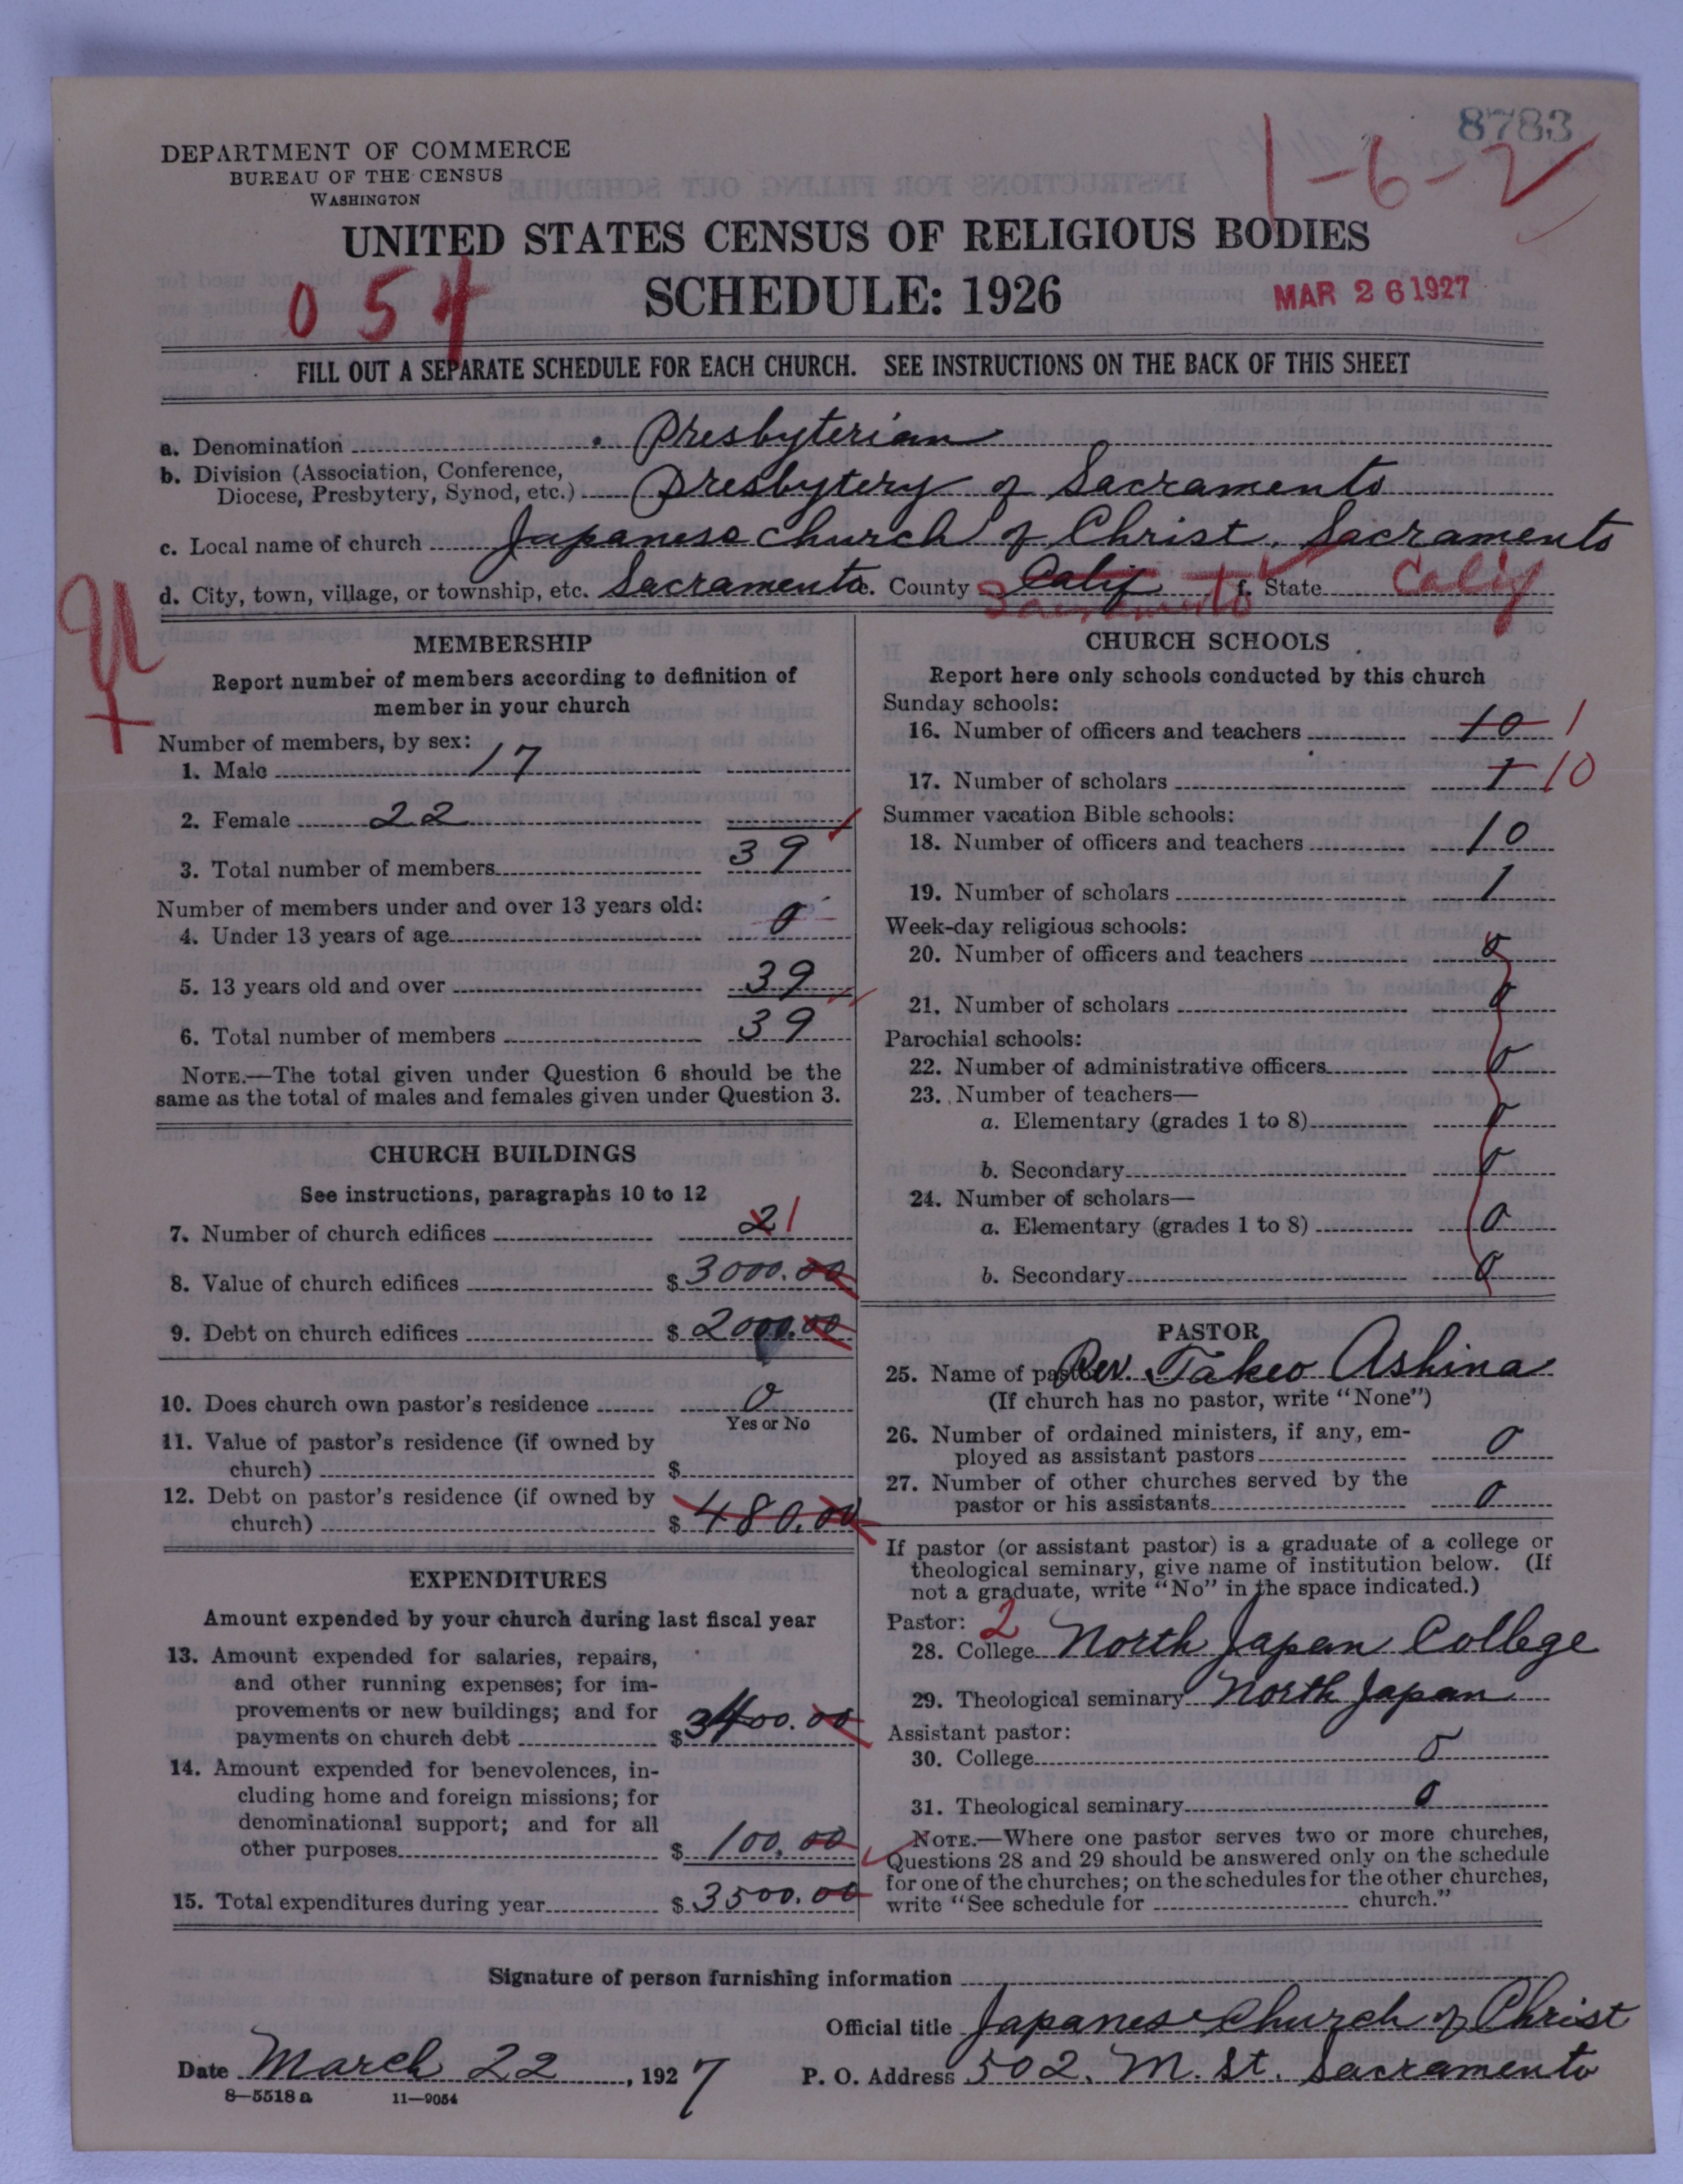 8783
1-6-2
DEPARTMENT OF COMMERCE
BUREAU OF THE CENSUS
WASHINGTON
UNITED STATES CENSUS OF RELIGIOUS BODIES
SCHEDULE: 1926
054
MAR 26 1927
FILL OUT A SEPARATE SCHEDULE FOR EACH CHURCH. SEE INSTRUCTIONS ON THE BACK OF THIS SHEET
a. Denomination Presbyterian
b. Division (Association, Conference,
Diocese, Presbytery, Synod, etc.) Presbytery of Sacramento
c. Local name of church Japanese Church of Christ, Sacramento
d. City, town, village, or township, etc. Sacramento e. County Calif Sacramento f. State Calif
MEMBERSHIP
Report number of members according to definition of
member in your church
Number of members, by sex:
1. Male 17
2. Female 22
3. Total number of members 39
Number of members under and over 13 years old:
4. Under 13 years of age 0
5. 13 years old and over 39
6. Total number of members 39
NOTE.—The total given under Question 6 should be the
same as the total of males and females given under Question 3.
CHURCH BUILDINGS
See instructions, paragraphs 10 to 12
7. Number of church edifices 2 1
8. Value of church edifices $ 3000.00
9. Debt on church edifices $ 2000.00
10. Does church own pastor's residence 0
Yes or No
11. Value of pastor's residence (if owned by
church) $
12. Debt on pastor's residence (if owned by
church) $ 480.00
EXPENDITURES
Amount expended by your church during last fiscal year
13. Amount expended for salaries, repairs,
and other running expenses; for im-
provements or new buildings; and for
payments on church debt $ 3400.00
14. Amount expended for benevolences, in-
cluding home and foreign missions; for
denominational support; and for all
other purposes $ 100.00
15. Total expenditures during year $ 3500.00
CHURCH SCHOOLS
Report here only schools conducted by this church
Sunday schools:
16. Number of officers and teachers 10 1
17. Number of scholars 1 10
Summer vacation Bible schools:
18. Number of officers and teachers 10
19. Number of scholars 1
Week-day religious schools:
20. Number of officers and teachers 0
21. Number of scholars 0
Parochial schools:
22. Number of administrative officers 0
23. Number of teachers—
a. Elementary (grades 1 to 8) 0
b. Secondary 0
24. Number of scholars—
a. Elementary (grades 1 to 8) 0
b. Secondary 0
PASTOR
25. Name of pastor Rev. Takeo Ashina
(If church has no pastor, write "None")
26. Number of ordained ministers, if any, em-
ployed as assistant pastors 0
27. Number of other churches served by the
pastor or his assistants 0
If pastor (or assistant pastor) is a graduate of a college or
theological seminary, give name of institution below. (If
not a graduate, write "No" in the space indicated.)
Pastor: 2
28. College North Japan College
29. Theological seminary North Japan
Assistant pastor:
30. College 0
31. Theological seminary 0
NOTE.—Where one pastor serves two or more churches,
Questions 28 and 29 should be answered only on the schedule
for one of the churches; on the schedules for the other churches,
write "See schedule for church."
Signature of person furnishing information
Official title Japanese Church of Christ
Date March 22, 1927 P. O. Address 502. M. St. Sacramento
8-5518a 11-9054